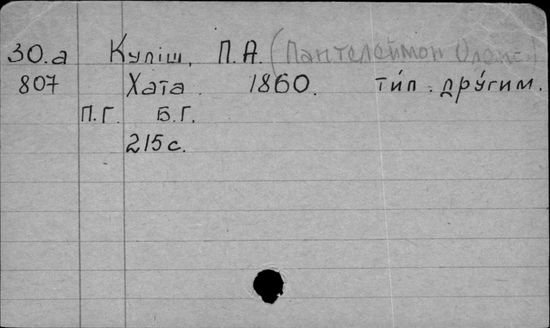 30.а Куліш, П.А. (Пантелеймон Олекс.)
807 Хата. 1860. тип. другим.
П.Г. Б.Г.
215 с.